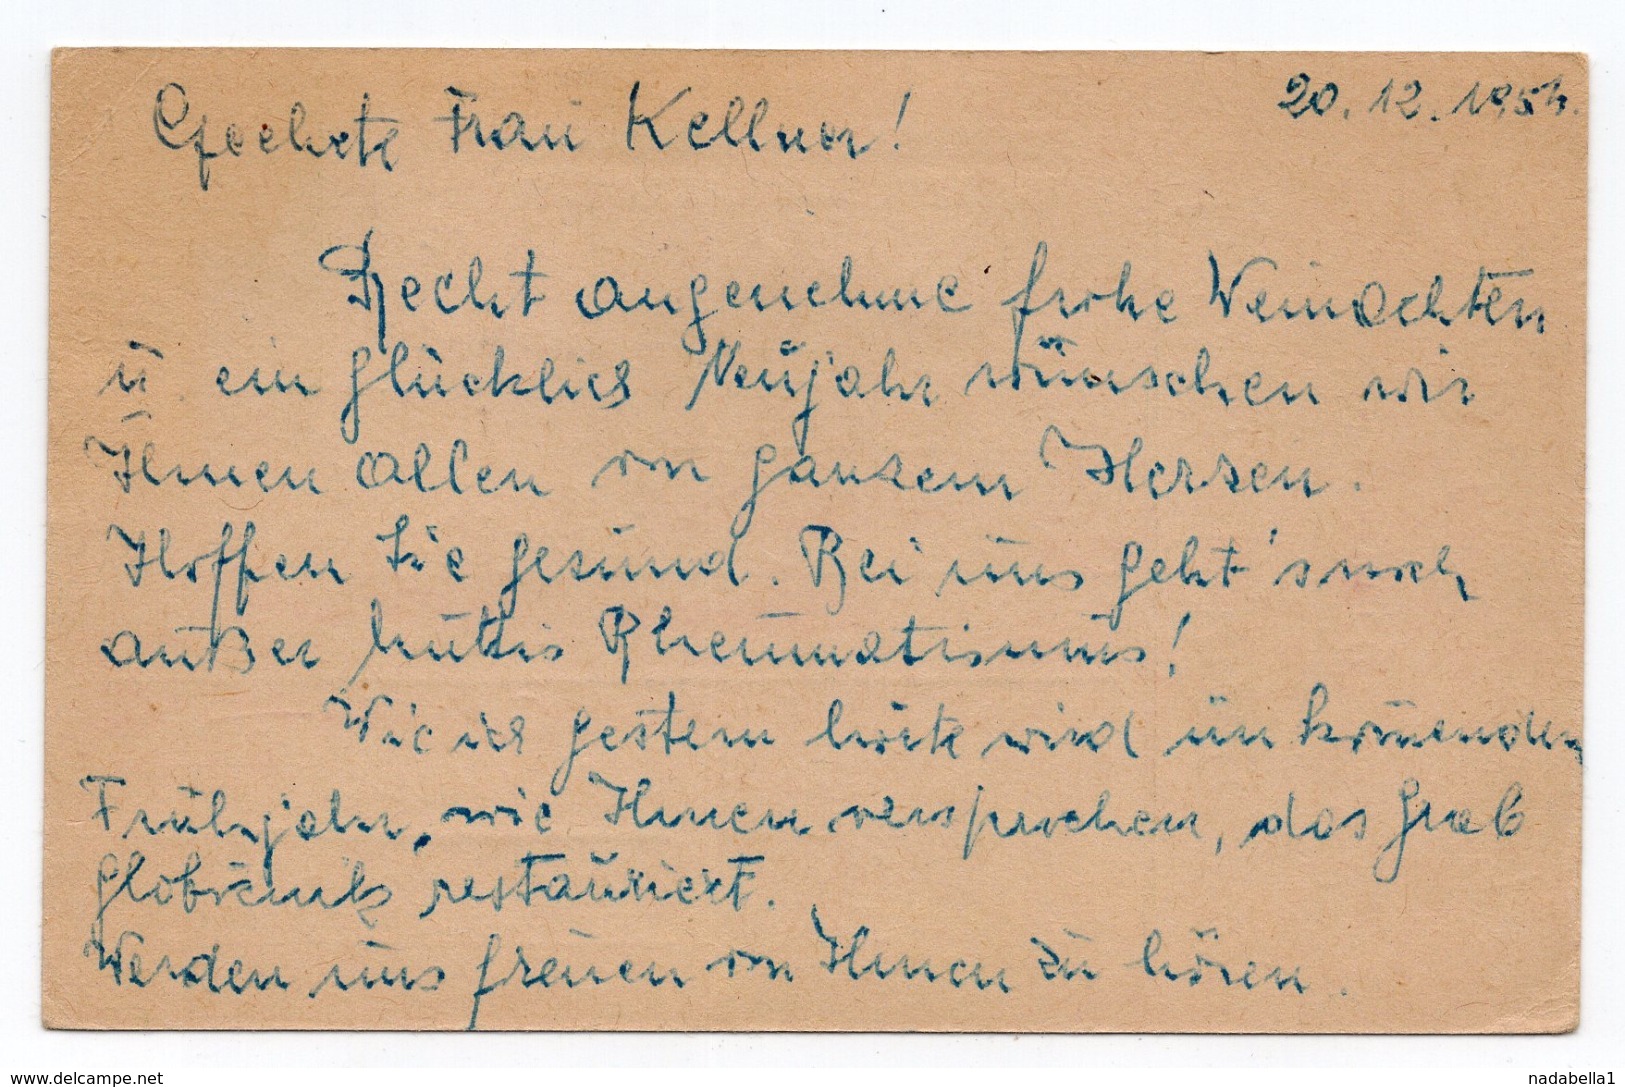 20.12.1954.
Geehrte Frau Kellner!
Recht angenehme frohe Weinachten
u. ein glücklich Neujahr wünschen wir
Ihnen Allen von ganzem Herzen.
Hoffen Sie gesund. Bei uns geht's noch
außer Rheumatismus!
Wie ich gestern hörte wird im kommenden
Frühjahr, wie Ihnen versprochen, das Grab
restauriert.
Werden uns freuen von Ihnen zu hören.
www.delcampe.net
nadabella1